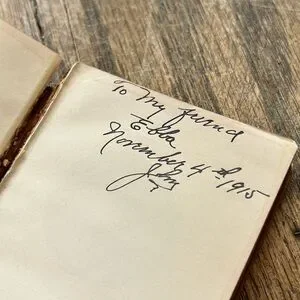 To My friend
Ebba
November 4th 1915